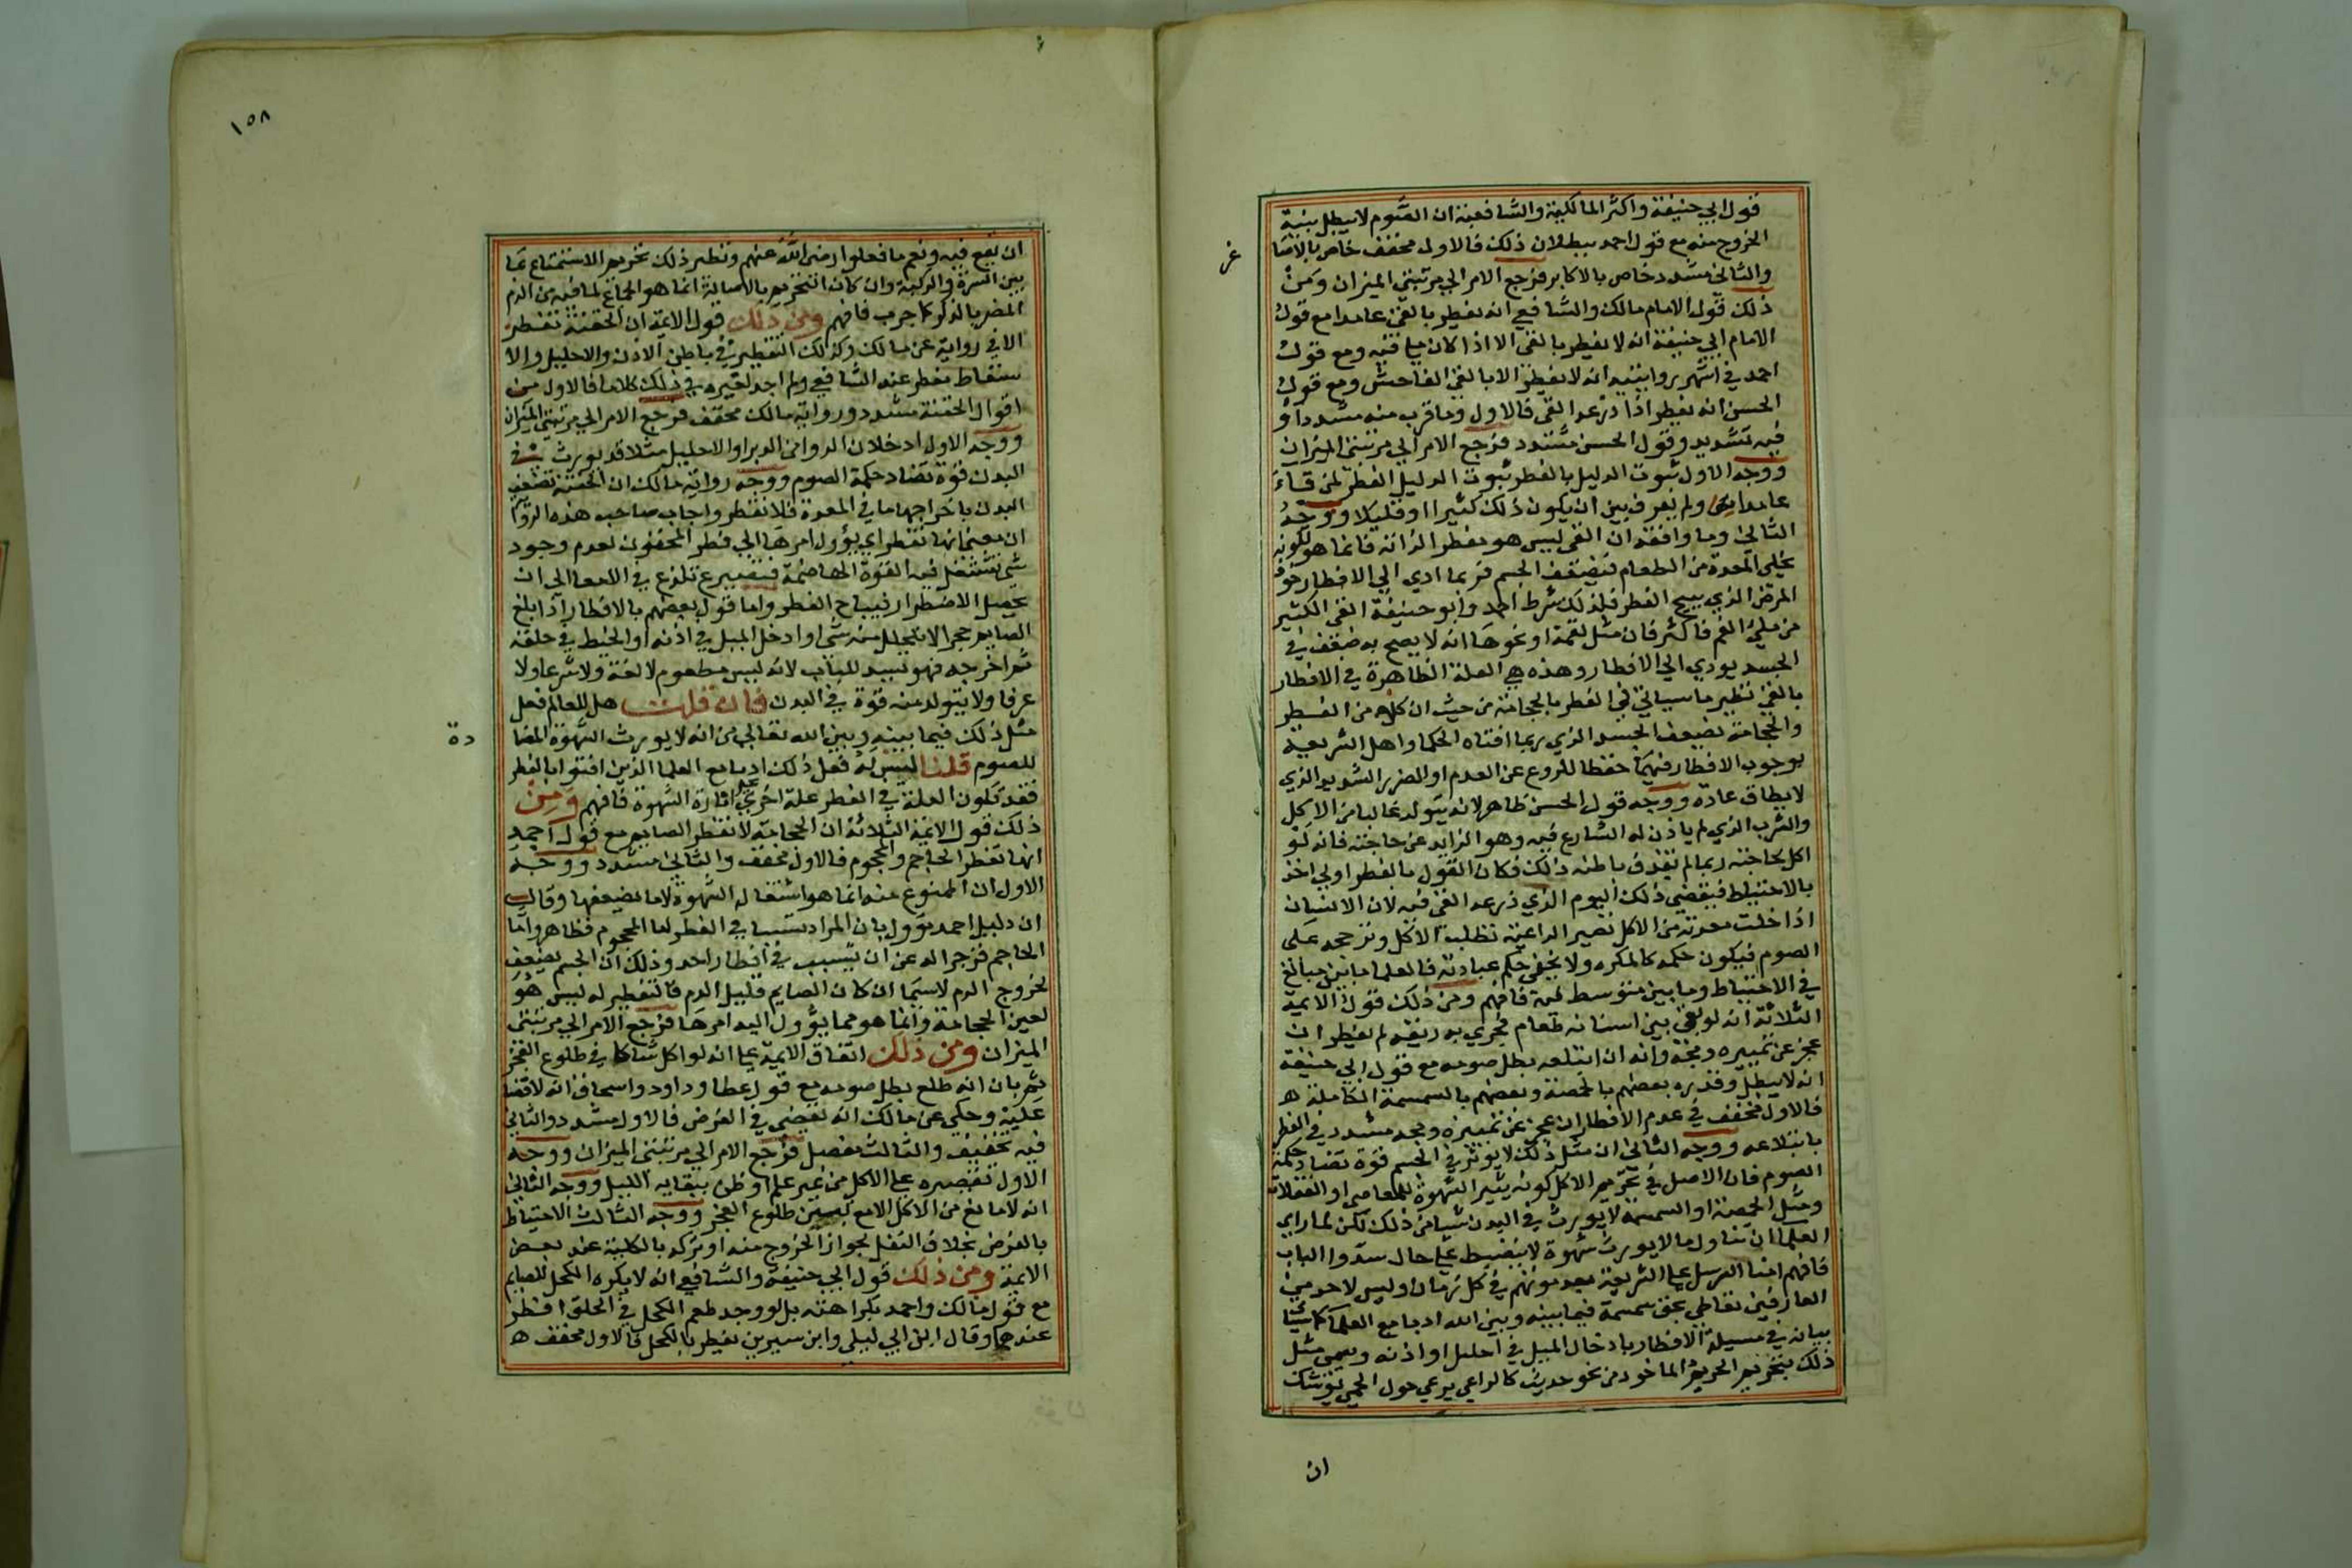 قول ابي حنيفة واكثر المالكية والشافعية ان الصوم لا يبطل بنية
الخروج منه مع قول احمد ببطلان ذلك فالاول مخفف خاص بالاصا
غر
والثاني مشدد خاص بالاكابر فرجع الامر الي مرتبتي الميزان ومن
ذلك قول الامام مالك والشافعي انه يفطر بالقئ عامدا مع قول
الامام ابي حنيفة انه لا يفطر بالقئ الا اذا كان ملا فيه ومع قول
احمد في اشهر روايتيه انه لا يفطر الا بالقئ الفاحش ومع قول
الحسن انه يفطر اذا ذرعه القئ فالاول وما قرب منه مشدد او
فيه تشديد وقول الحسن مشدد فرجع الامر الي مرتبتي الميزان
ووجه الاول ثبوت الدليل بالفطر ثبوت الدليل الفطر لمن قاء
عامدا ولم يفرق بين ان يكون ذلك كثيرا او قليلا ووجه
الثاني وما وافقه ان القئ ليس هو مفطر الذاته فانما هو لكونه
يخلي المعدة من الطعام فيضعف الجسم فربما ادي الي الافطار نحو
المرض الذي يبيح الفطر فلذلك شرط احمد وابو حنيفة القئ الكثير
من ملئ الفم فاكثر فان مثل لقمة او نحوها انه لا يصح به ضعف في
الجسد يودي الي الافطار وهذه هي العلة الظاهرة في الافطار
بالقئ نظير ما سياتي في الفطر بالحجامة من حيث ان كلا من الفطر
والحجامة يضعف الجسد الذي ربما افتاه الحكما واهل الشريعة
بوجوب الافطار فيهما حفظا للروح عن العدم او الضرر الشديد الذي
لا يطاق عادة ووجه قول الحسن ظاهر لانه يتولد غالبا من الاكل
والشرب الذي لم ياذن له الشارع فيه وهو الزايد عن حاجته فانه لو
اكل بحاجته ربما لم تقذف باطنه ذلك فكان القول بالفطر اولي اخذ
بالاحتياط فيقضي ذلك اليوم الذي ذرعه القئ فيه لان الانسان
اذا خلت معدته من الاكل تصير الداعية تطلب الاكل وترجحه على
الصوم فيكون حكمه كالمكره ولا يخفي حكم عبادته فالعلما ما بين مبالغ
في الاحتياط وما بين متوسط فيه فافهم ومن ذلك قول الايمة
الثلاثة انه لو بقي بين اسنانه طعام فجري به ريقه لم يفطر ان
عجز عن تمييزه ومجه وانه ان ابتلعه بطل صومه مع قول ابي حنيفة
انه لا يبطل وقدره بعضهم بالحمصة وبعضهم بالسمسمة الكاملة ه
فالاول مخفف في عدم الافطار ان عجز عن تمييزه ومجه مشدد في الفطر
بابتلاعه ووجه الثاني ان مثل ذلك لا يوثر في الجسم قوة تضاد حكمة
الصوم فان الاصل في تحريم الاكل كونه يثير الشهوة للمعاصي او الغفلات
ومثل الحمصة او السمسمة لا يورث في البدن شيا من ذلك لكن لما راي
العلما ان تناول ما لا يورث شهوة لا ينضبط علي حال سدوا الباب
فافهم امنا الرسل علي الشريعة بعد موتهم في كل زمان وليس لاحد من
العارفين تعاطي بحق سمسمة فيما بينه وبين الله ادبا مع العلما كما سياتي
بيانه في مسيلة الافطار بادخال الميل في احليل او اذنه ويسمي مثل
ذلك بتحريم الحريم الماخوذ من نحو حديث كالراعي يرعي حول الحمي يوشك
ان
١٥٨
ان يقع فيه ونعم ما فعلوا رضي الله عنهم ونظير ذلك تحريم الاستمتاع بما
بين السرة والركبة وان كان التحريم بالاصالة انما هو الجماع لما فيه من الدم
المضر بالذكر كما جرب فافهم ومن ذلك قول الايمة ان الحقنة تفطر
الا في رواية عن مالك وكذلك التقطير في باطن الاذن والاحليل والا
ستعاط مفطر عند الشافعي ولم اجد لغيره في ذلك كلاما فالاول من
اقوال الحقنة مشدد ورواية مالك مخفف فرجع الامر الي مرتبتي الميزان
ووجه الاول ادخلان الدوا من الدبر او الاحليل مثلا قد يورث في
البدن قوة تضاد حكمة الصوم ووجه رواية مالك ان الحقنة تضعف
البدن باخراجها ما في المعدة فلا تفطر واجاب صاحب هذه الرواية
ان معني انها تفطر اي يؤول امرها الي فطر المحقون لعدم وجود
شئ تشتغل فيه القوة الهاضمة فيصير تلذع في الامعا الي ان
يحصل الاضطرار فيباح الفطر واما قول بعضهم بالافطار اذا بلع
الصايم حجرا لا يتحلل منه شئ او ادخل الميل في اذنه او الخيط في حلقه
ثم اخرجه فهو لسد للباب لانه ليس مطعوم لا لغة ولا شرعا ولا
عرفا ولا يتولد منه قوة في البدن فان قلت هل للعالم فعل
مثل ذلك فيما بينه وبين الله تعالي من انه لا يورث الشهوة المضا
دة
للصوم قلنا ليس له فعل ذلك ادبا مع العلما الذين افتوا بالفطر
فقد تكون العلة في الفطر علة اخري غير اثارة الشهوة فافهم ومن
ذلك قول الائمة الثلاثة ان الحجامة لا تفطر الصايم مع قول احمد
انها تفطر الحاجم والمحجوم فالاول مخفف والثاني مشدد ووجه
الاول ان الممنوع منه انما هو اشتعاله الشهوة لا ما يضعفها وقال
ان دليل احمد مؤول بان المراد تسببا في الفطر اما المحجوم فظاهر واما
الحاجم فزجرا له عن ان يتسبب في افطار احد وذلك ان الجسم يضعف
بخروج الدم لاسيما ان كان الصايم قليل الدم فالتفطير له ليس هو
لعين الحجامة وانما هو مما يؤول اليه امرها فرجع الامر الي مرتبتي
الميزان ومن ذلك اتفاق الايمة علي انه لو اكل شاكا في طلوع الفجر
ثم بان انه طلع بطل صومه مع قول عطا وداود واسحاق انه لا قضا
عليه وحكي عن مالك انه يقضي في الفرض فالاول مشدد والثاني
فيه تخفيف والثالث مفصل فرجع الامر الي مرتبتي الميزان ووجه
الاول تقصيره علي الاكل من غير علم او ظن ببقايه الليل ووجه الثاني
انه لا مانع من الاكل الا مع تبين طلوع الفجر ووجه الثالث الاحتياط
بالفرض بخلاف النفل بجواز الخروج منه او تركه بالكلية عند بعض
الايمة ومن ذلك قول ابي حنيفة والشافعي انه لا يكره الكحل للصايم
مع قول مالك واحمد بكراهته بل لو وجد طعم الكحل في الحلق افطر
عندهما وقال ابن ابي ليلي وابن سيرين يفطر بالكحل فالاول مخفف ه